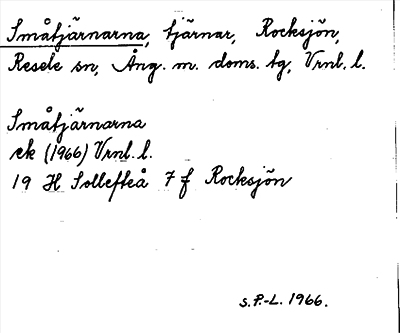 Småtjärnarna, tjärnar, Rocksjön,
Resele sn, Ång. m. doms. tg, Vrnl. l.
Småtjärnarna
ek (1966) Vrnl. l.
19 H Sollefteå 7 f Rocksjön
S.P.-L. 1966.